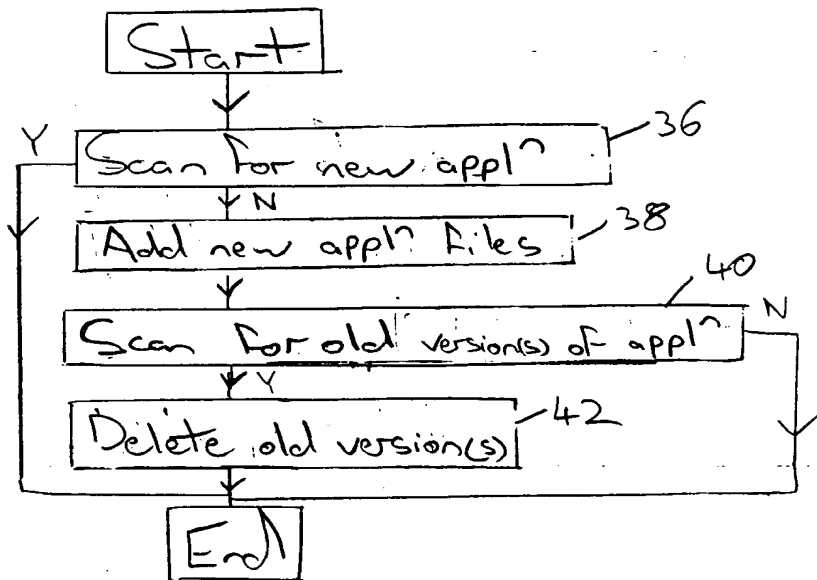 Start
36
Y
Scan for new appl^n
N
Add new appl^n files
38
40
N
Scan for old version(s) of appl^n
Y
Delete old version(s)
42
End